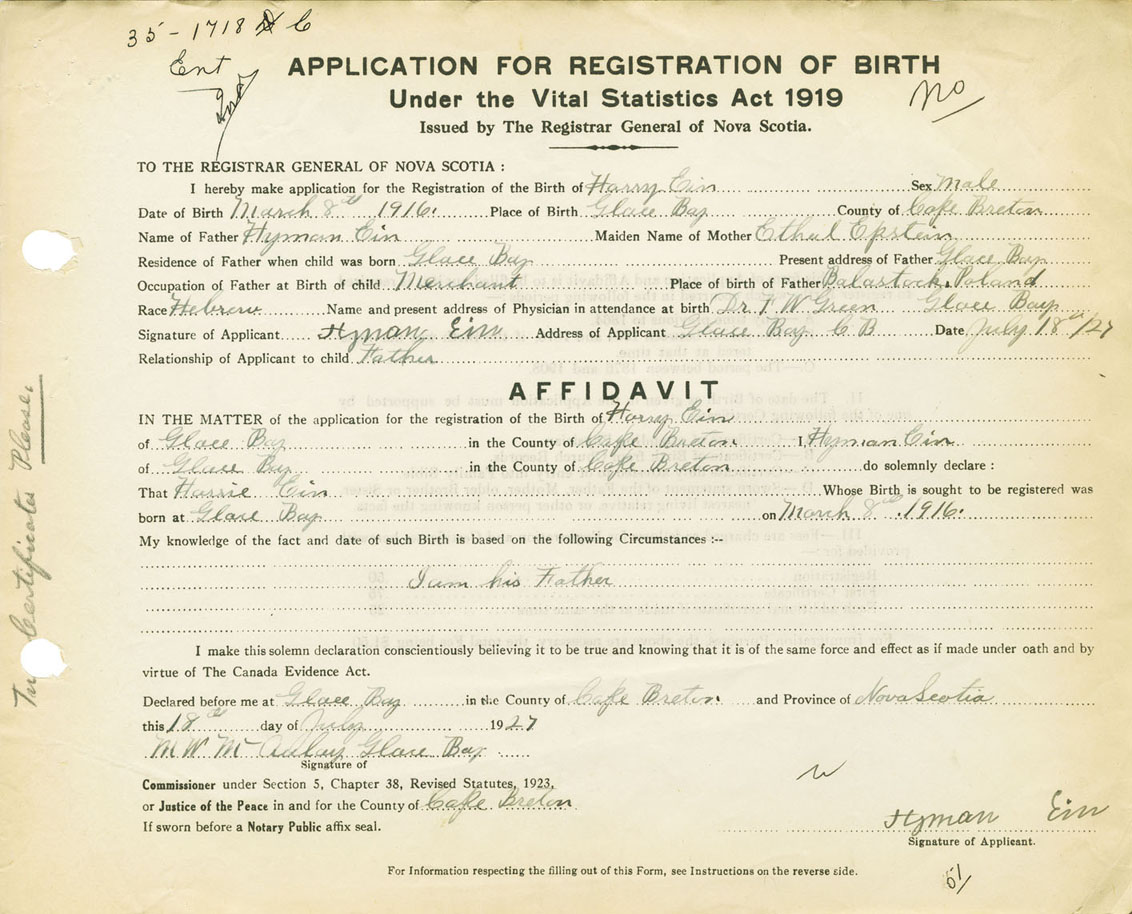 35-1718 C
Ent
APPLICATION FOR REGISTRATION OF BIRTH
Under the Vital Statistics Act 1919
No
Issued by The Registrar General of Nova Scotia.
TO THE REGISTRAR GENERAL OF NOVA SCOTIA :
I hereby make application for the Registration of the Birth of Harry Ein Sex Male
Date of Birth March 8th 1916. Place of Birth Glace Bay County of Cape Breton
Name of Father Hyman Ein Maiden Name of Mother Ethul Epstein
Residence of Father when child was born Glace Bay Present address of Father Glace Bay
Occupation of Father at Birth of child Merchant Place of birth of Father Balastock, Poland
Race Hebrew Name and present address of Physician in attendance at birth Dr. F W Green Glace Bay
Signature of Applicant Hyman Ein Address of Applicant Glace Bay C B Date July 18th/27
Relationship of Applicant to child Father
AFFIDAVIT
IN THE MATTER of the application for the registration of the Birth of Harry Ein
of Glace Bay in the County of Cape Breton I, Hyman Ein
of Glace Bay in the County of Cape Breton do solemnly declare :
That Harrie Ein Whose Birth is sought to be registered was
born at Glace Bay on March 8th 1916.
My knowledge of the fact and date of such Birth is based on the following Circumstances :--
I am his Father
I make this solemn declaration conscientiously believing it to be true and knowing that it is of the same force and effect as if made under oath and by
virtue of The Canada Evidence Act.
Declared before me at Glace Bay in the County of Cape Breton and Province of Nova Scotia
this 18th day of July 1927
M W Mc Glace Bay
Signature of
Commissioner under Section 5, Chapter 38, Revised Statutes, 1923,
or Justice of the Peace in and for the County of Cape Breton
If sworn before a Notary Public affix seal.
Hyman Ein
Signature of Applicant.
For Information respecting the filling out of this Form, see Instructions on the reverse side.
Certificates Please.